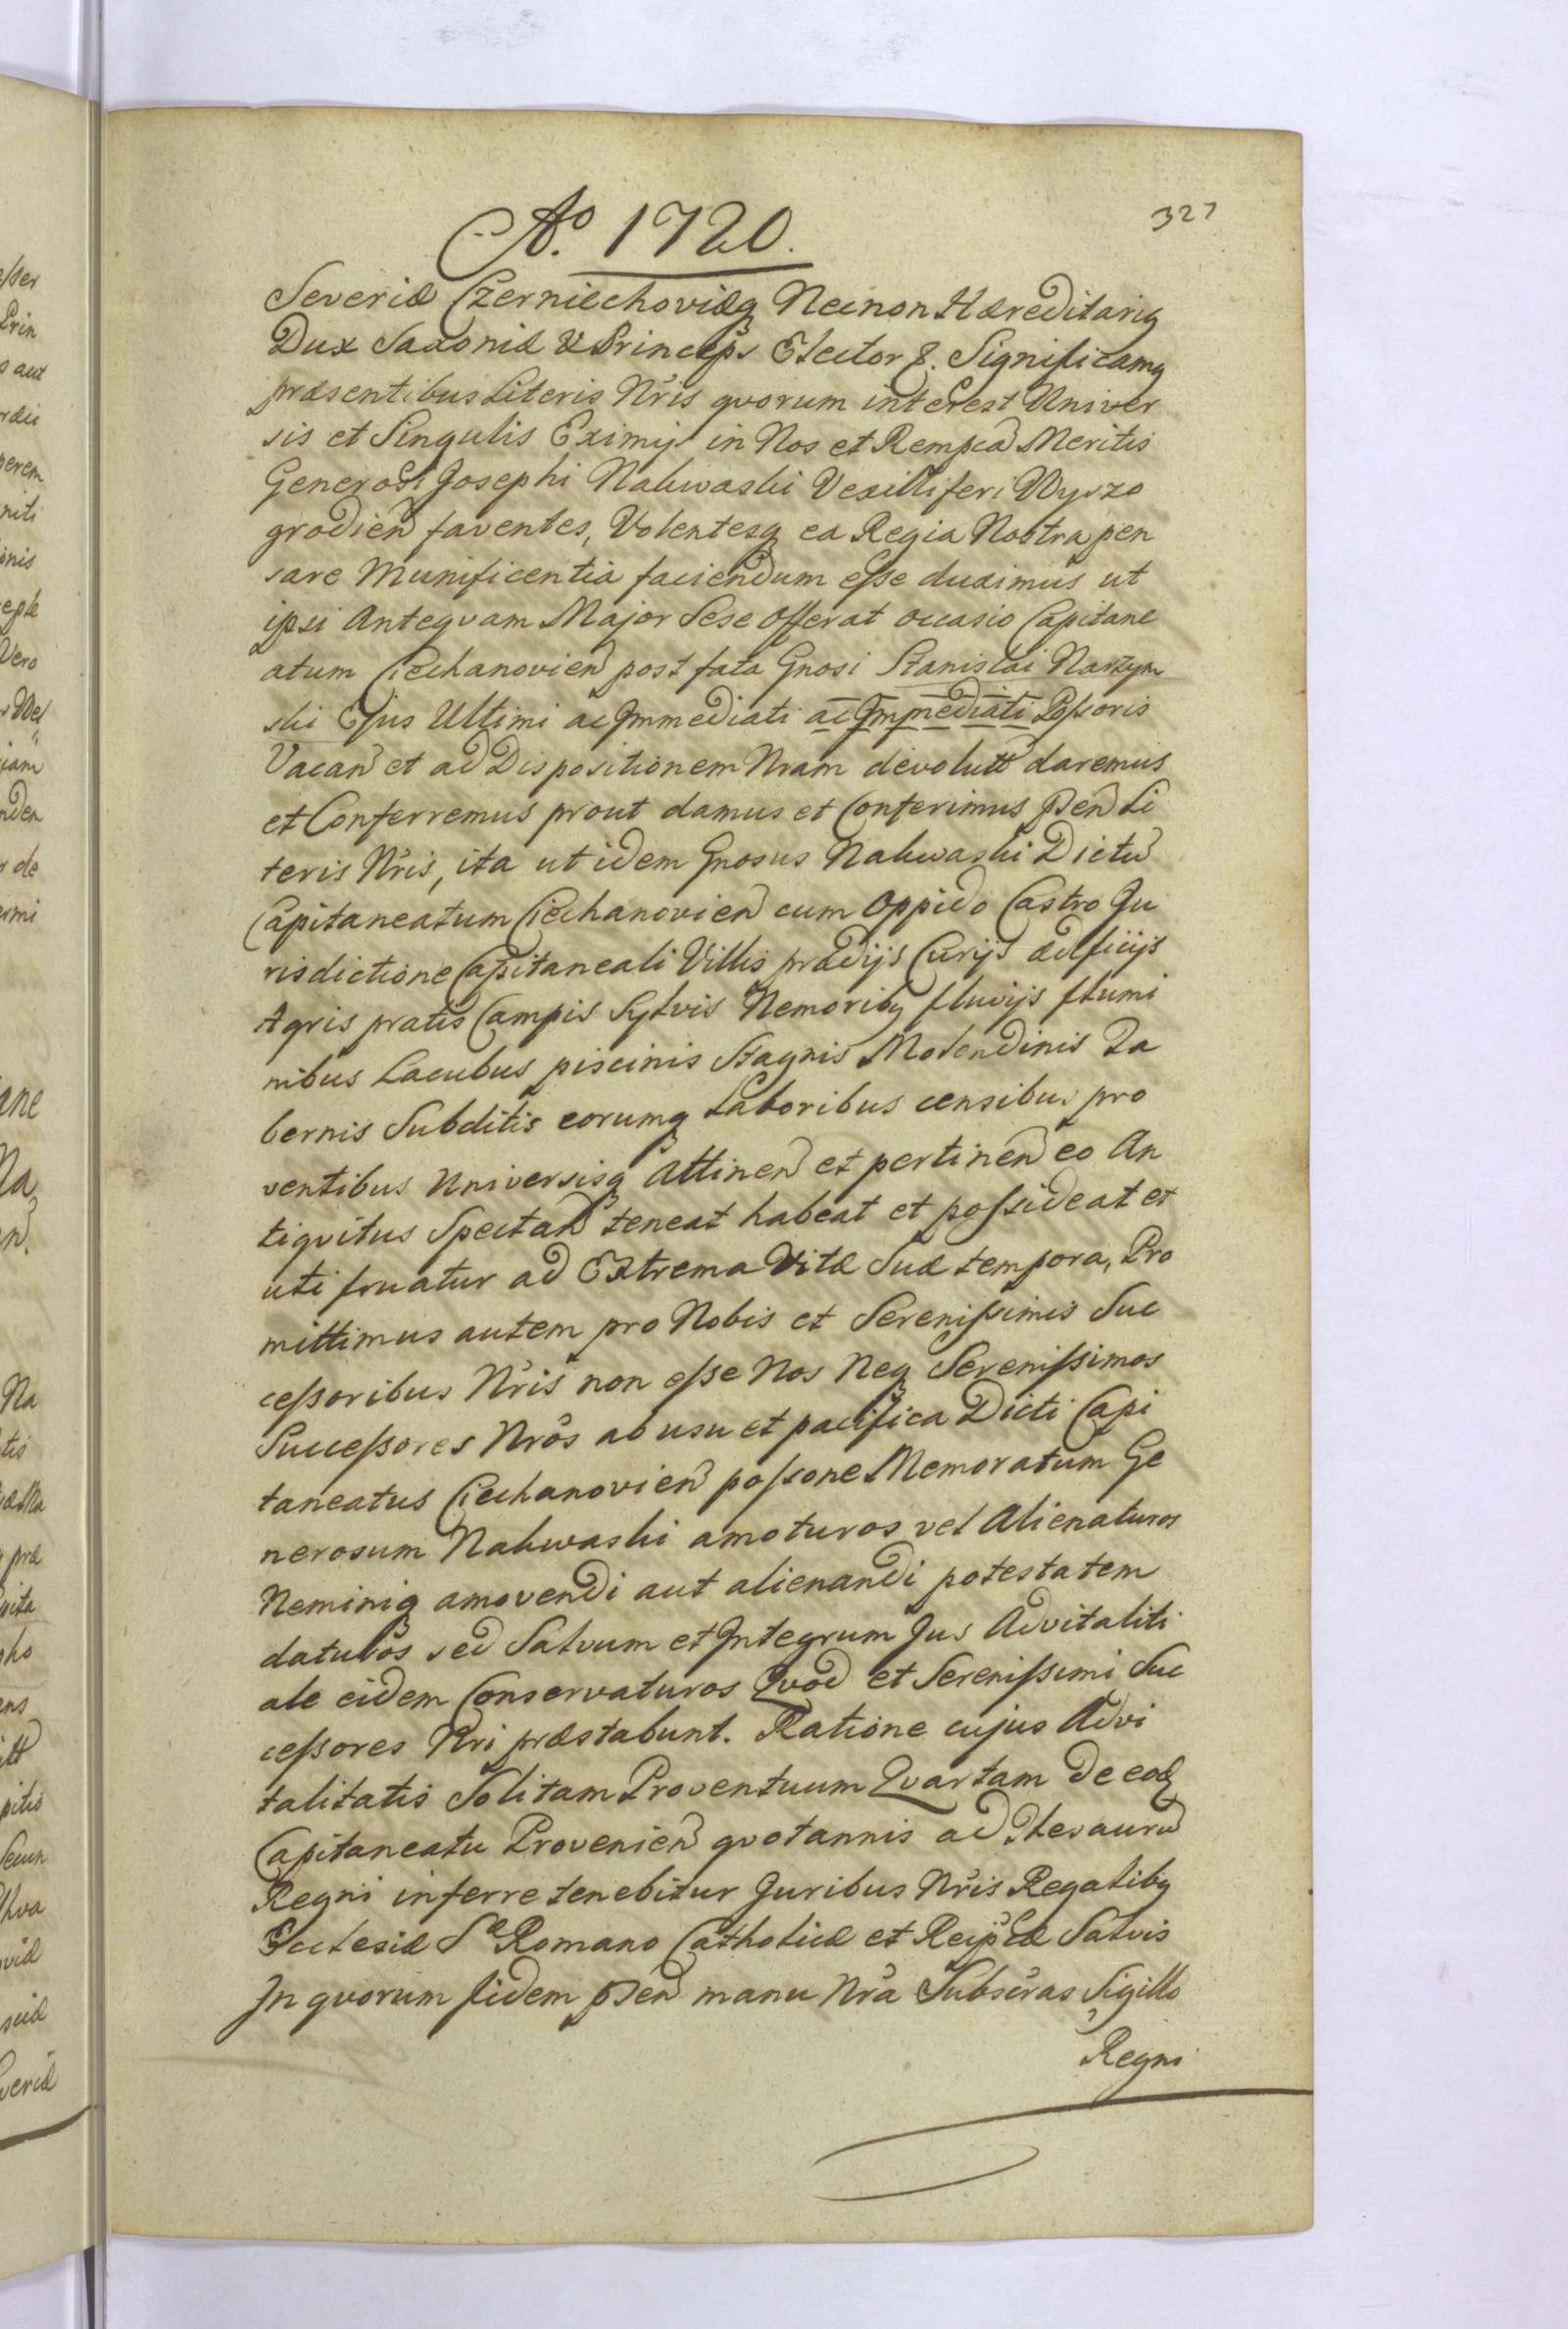 327
Aō. 1720.
Severiæ Czerniechoviæq Necnon Hæreditariq
Dux Saxoniæ & Princeps Elector &. Significamq
præsentibus Literis Nr̃is qvorum interest Univer
sis et Singulis Eximijs in Nos et Rempcã Meritis
Generosi Josephi Nakwaski Vexilliferi Wyszo
grodień faventes, Volentesq ea Regia Nostra pen
sare Munificentia faciendum esse duximus ut
ipsi Anteqvam Major Sese Offerat occasio Capitane
atum Ciechanovień post fata Gnosi Stanislai Narzym
ski Ejus Ultimi ac Immediati ac Immediati Possoris
Vacań et ad Dispositionem Nram devolutt daremus
et Conferremus prout damus et Conferimus pseń Li
teris Nr̃is, ita ut idem Gnosus Nakwaski Dictũ
Capitaneatum Ciechanovień cum Oppido Castro Ju
risdictione Capitaneali Villis prædijs Curijs ædificijs
Agris pratis Campis Sylvis Nemoribq fluvijs flumi
nibus Lacubus piscinis Stagnis Molendinis Ta
bernis Subditis eorumq Laboribus censibus pro
ventibus Universisq Attineń et pertineń eo An
tiqvitus Spectań teneat habeat et possideat et
uti fruatur ad Extrema Vitæ Suæ tempora, Pro
mittimus autem pro Nobis et Serenissimis Suc
cessoribus Nr̃is non esse Nos Neq Serenissimos
Successores Nrõs ab usu et pacifica Dicti Capi
taneatus Ciechanovień possone Memoratum Ge
nerosum Nakwaski amoturos vel Alienaturos
Neminiq amovendi aut alienandi potestatem
daturos sed Salvum et Integrum Jus Advitaliti
ale eidem Conservaturos Qvod et Serenissimi Suc
cessores Nri præstabunt. Ratione cujus Advi
talitatis Solitam Proventuum Qvartam de eoď
Capitaneatu Provenień qvotannis ad Thesaurũ
Regni inferre tenebitur Juribus Nr̃is Regalibq
Ecclesiæ Sæ Romano Catholicæ et Reipcæ Salvis
In qvorum fidem pseń manu Nr̃a Subscr̃as Sigillo
Regni